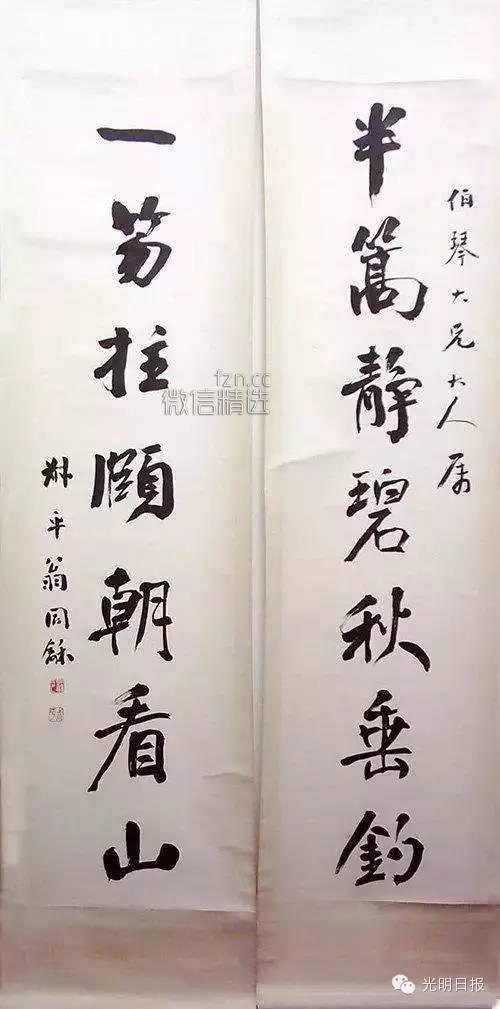 伯琴大兄大人属
半篙靜碧秋垂釣
一笏拄頤朝看山
叔平翁同龢
fzn.cc
微信精选
光明日报